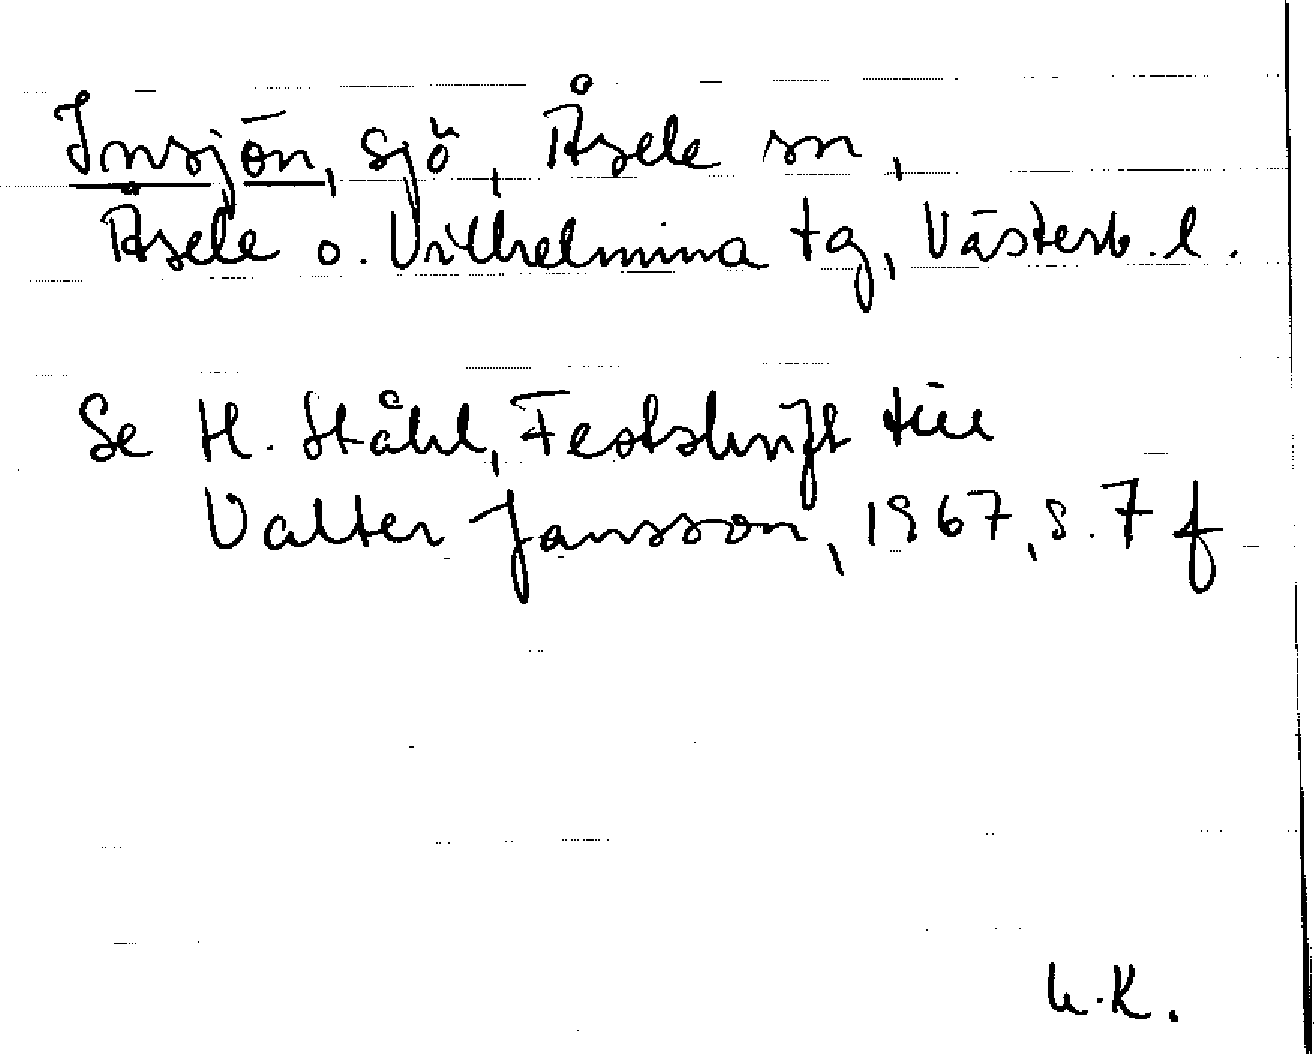 Insjön, sjö, Åsele sn,
Åsele o. Vilhelmina tg, Västerb. l.
Se H. Ståhl, Festskrift till
Valter Jansson, 1967, s. 7 f
L.K.